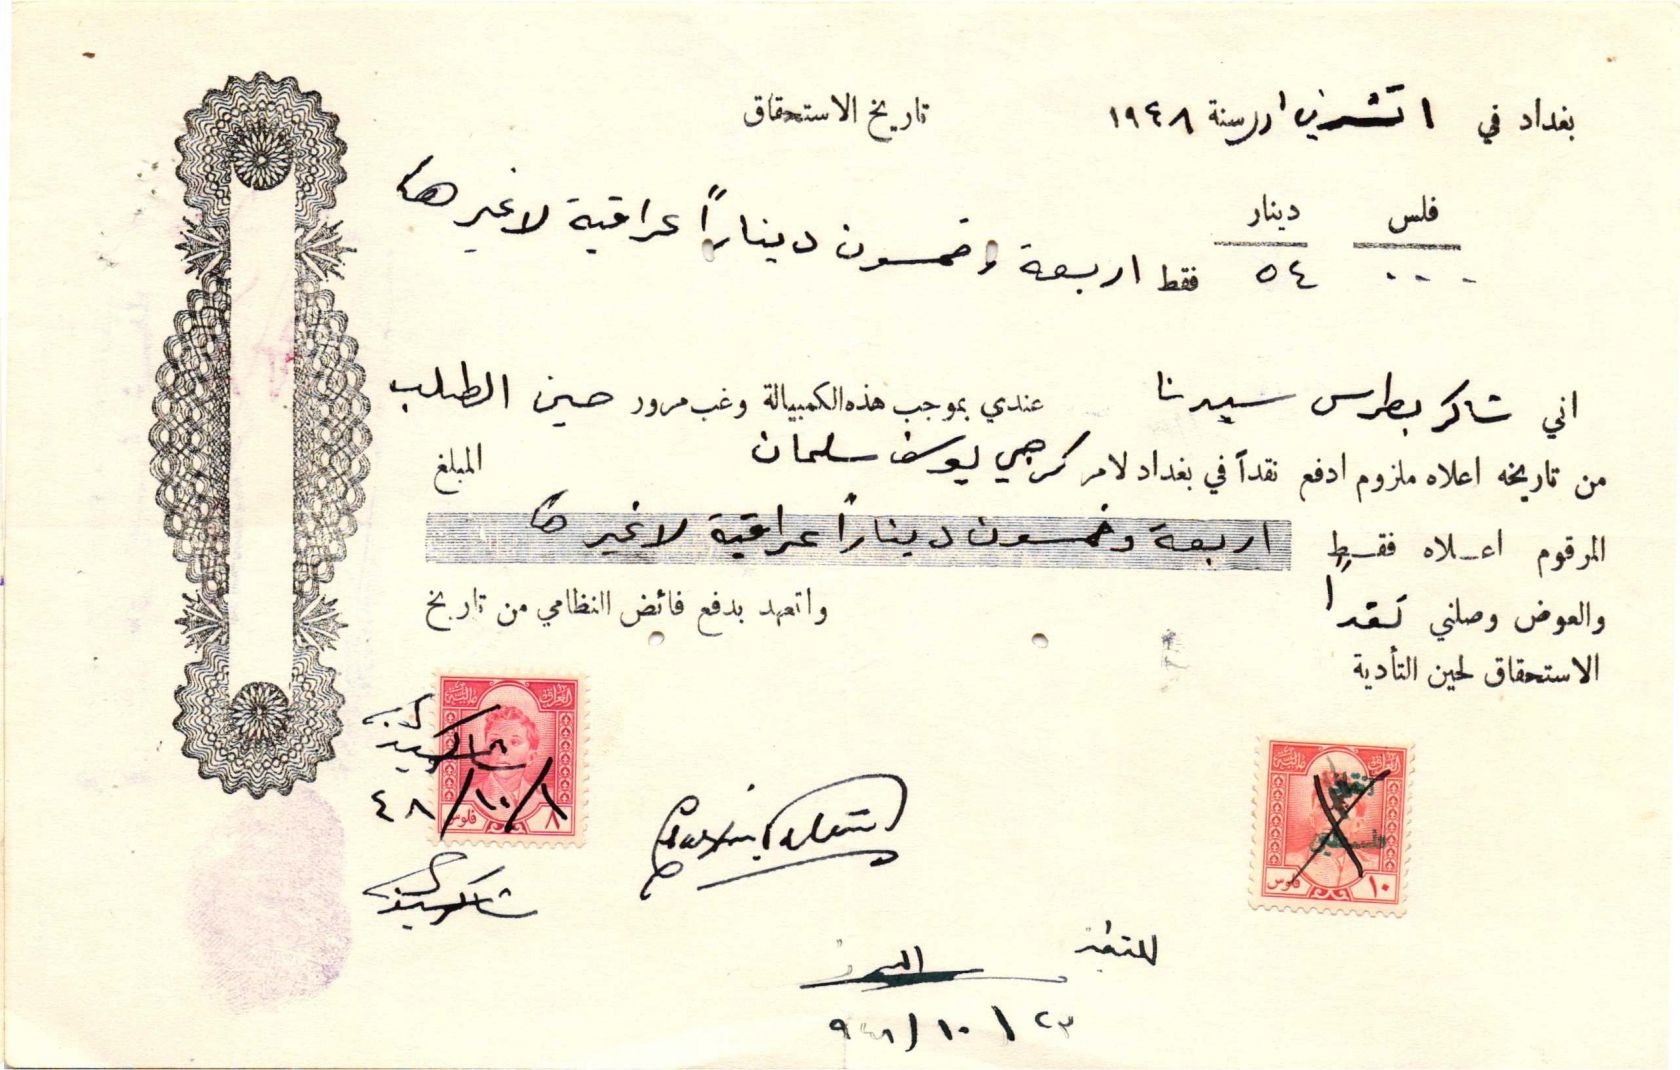 بغداد في ١ تشرين ١ ١ر سنة ١٩٤٨
تاريخ الاستحقاق
فلس دينار
٠٠٠ ٥٤ فقط اربعة وخمسون ديناراً عراقية لاغيرها
اني شاكر بطرس سيدنا عندي بموجب هذه الكمبيالة وغب مرور حين الطلب
من تاريخه اعلاه ملزوم ادفع نقداً في بغداد لامر كرجي يوسف سلمان المبلغ
المرقوم اعلاه فقط اربعة وخمسون ديناراً عراقية لاغيرها
والعوض وصلني نقداً واتعهد بدفع فائض النظامي من تاريخ
الاستحقاق لحين التأدية
العراق مالية
٨ فلوس
شاكر سيدنا
٤٨/١٠/١
شاكر سيدنا
العراق مالية
انقاذ
فلسطين
١٠ فلوس
٩٤٨/١٠/٢٣